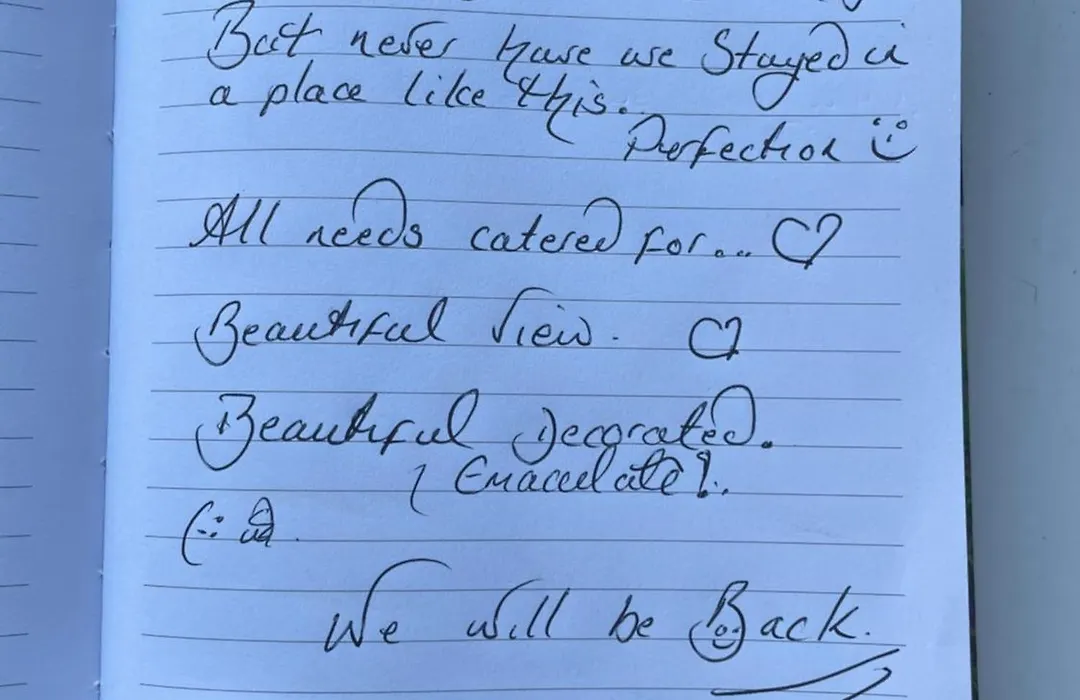 But never have we Stayed in
a place like this.
Perfection
All needs catered for...
Beautiful View.
Beautiful Decorated.
Emaculate!.
We will be Back.